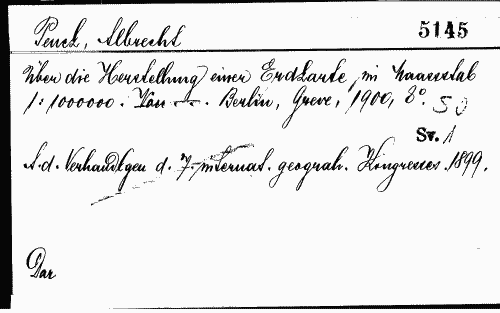 Penck, Albrecht 5145
Über die Herstellung einer Erdkarte im Maasstab
1:1000000. Von —. Berlin, Greve, 1900, 8°.
Sv. 1
A. d. Verhandlgen d. 7. internat. geograh. Kongresses. 1899.
Dar